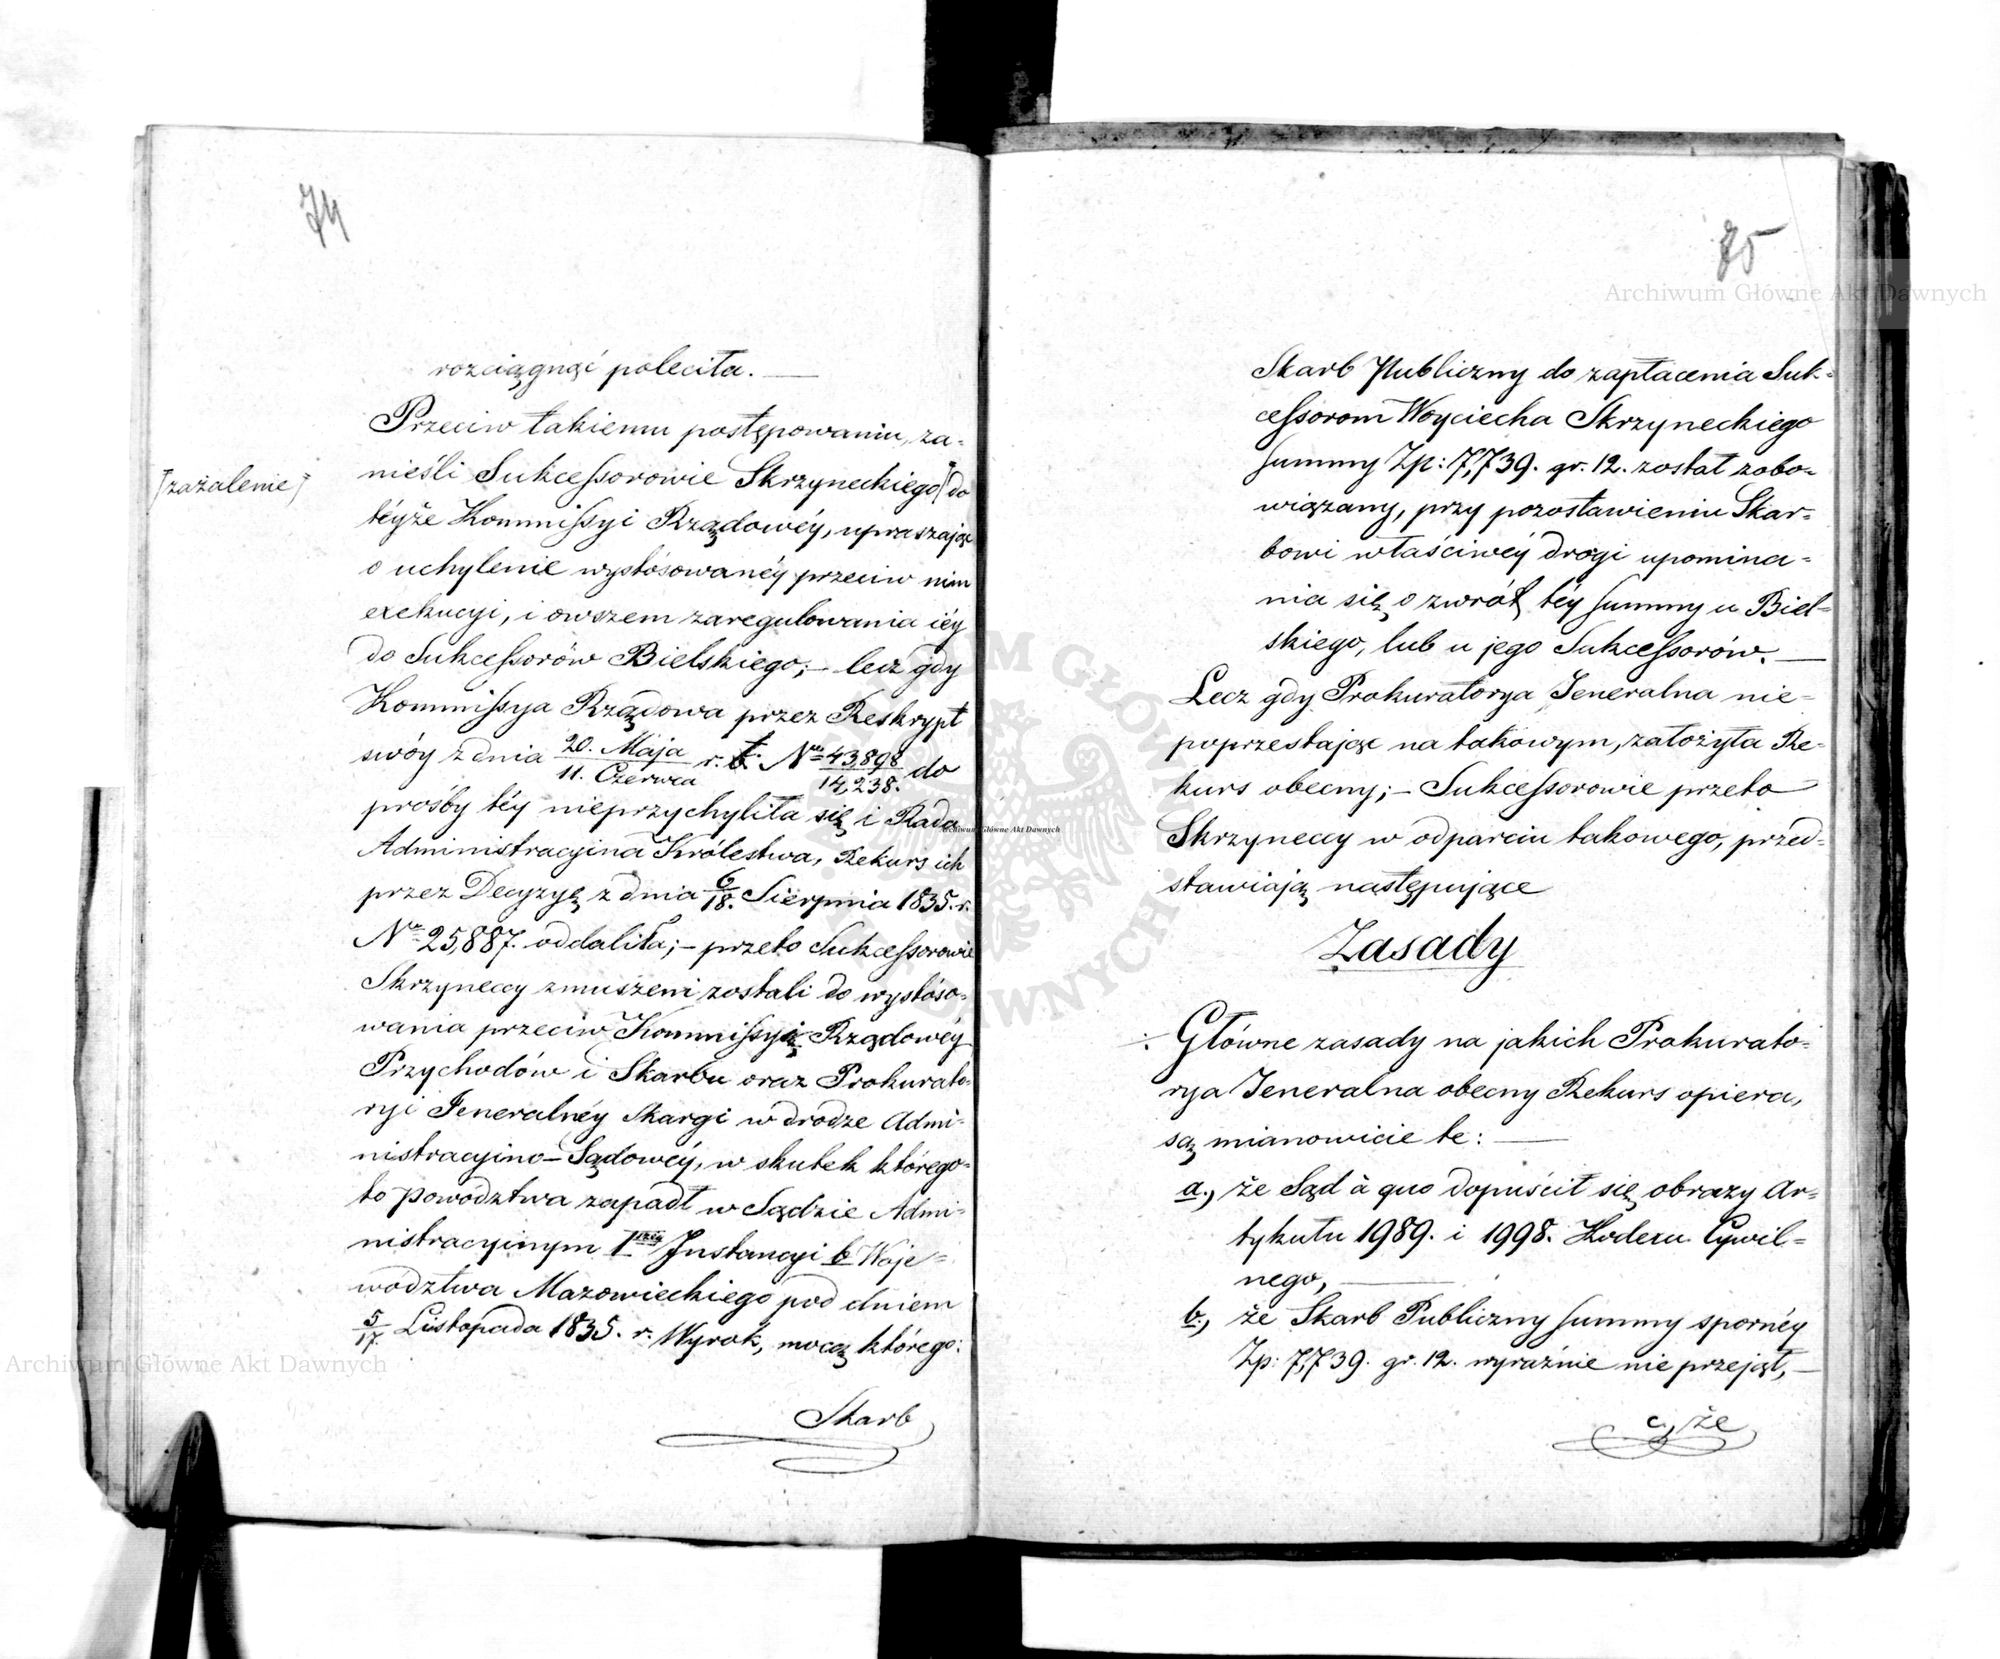 74
rozciągnąć poleciła. —
Przeciw takiemu postępowaniu, za-
nieśli Sukcessorowie Skrzyneckiego do
[zażalenie]
téyże Kommissyi Rządowéy, upraszając
o uchylenie wystósowanéy przeciw nim
exekucyi, i owszem zaregulowania iéy
do Sukcessorów Bielskiego; – lecz gdy
Kommissya Rządowa przez Reskrypt
swóy z dnia 20. Maja / 11. Czerwca r. t. Nro 43,898 / 14,238. do
prośby téy nieprzychyliła się i Rada
Administracyina Królestwa, Rekurs ich
przez Decyzyę z dnia 6/18. Sierpnia 1835. r.
Nro 25,887. oddaliła; – przeto Sukcessorowie
Skrzyneccy zmuszeni zostali do wystóso-
wania przeciw Kommissyi Rządowéy
Przychodów i Skarbu oraz Prokurato-
ryi Jeneralnéy Skargi w drodze Admi-
nistracyino-Sądowéy, w skutek którego-
to powództwa zapadł w Sądzie Admi-
nistracyinym Iszéy Instancyi b Woje-
wództwa Mazowieckiego pod dniem
5/17. Listopada 1835. r. Wyrok, mocą którego:
Skarb
75
Skarb Publiczny do zapłacenia Suk-
cessorom Woyciecha Skrzyneckiego
summy Zp: 7,739. gr. 12. został zobo-
wiązany, przy pozostawieniu Skar-
bowi właściwéy drogi upomina-
nia się o zwrót téy summy u Biel-
skiego, lub u jego Sukcessorów. —
Lecz gdy Prokuratorya Jeneralna nie-
poprzestając na takowym, założyła Re-
kurs obecny; – Sukcessorowie przeto
Skrzyneccy w odparciu takowego, przed-
stawiają następujące
Zasady
Główne zasady na jakich Prokurato-
rya Jeneralna obecny Rekurs opiera,
są mianowicie te: —
a., że Sąd à quo dopuścił się obrazy Ar-
tykułu 1989. i 1998. Kodexu Cywil-
nego, —
b., że Skarb Publiczny summy spornéy
Zp: 7,739. gr. 12. wyraźnie nie przejął, —
c., że
Archiwum Główne Akt Dawnych
Archiwum Główne Akt Dawnych
Archiwum Główne Akt Dawnych
ARCHIWUM GŁÓWNE AKT DAWNYCH